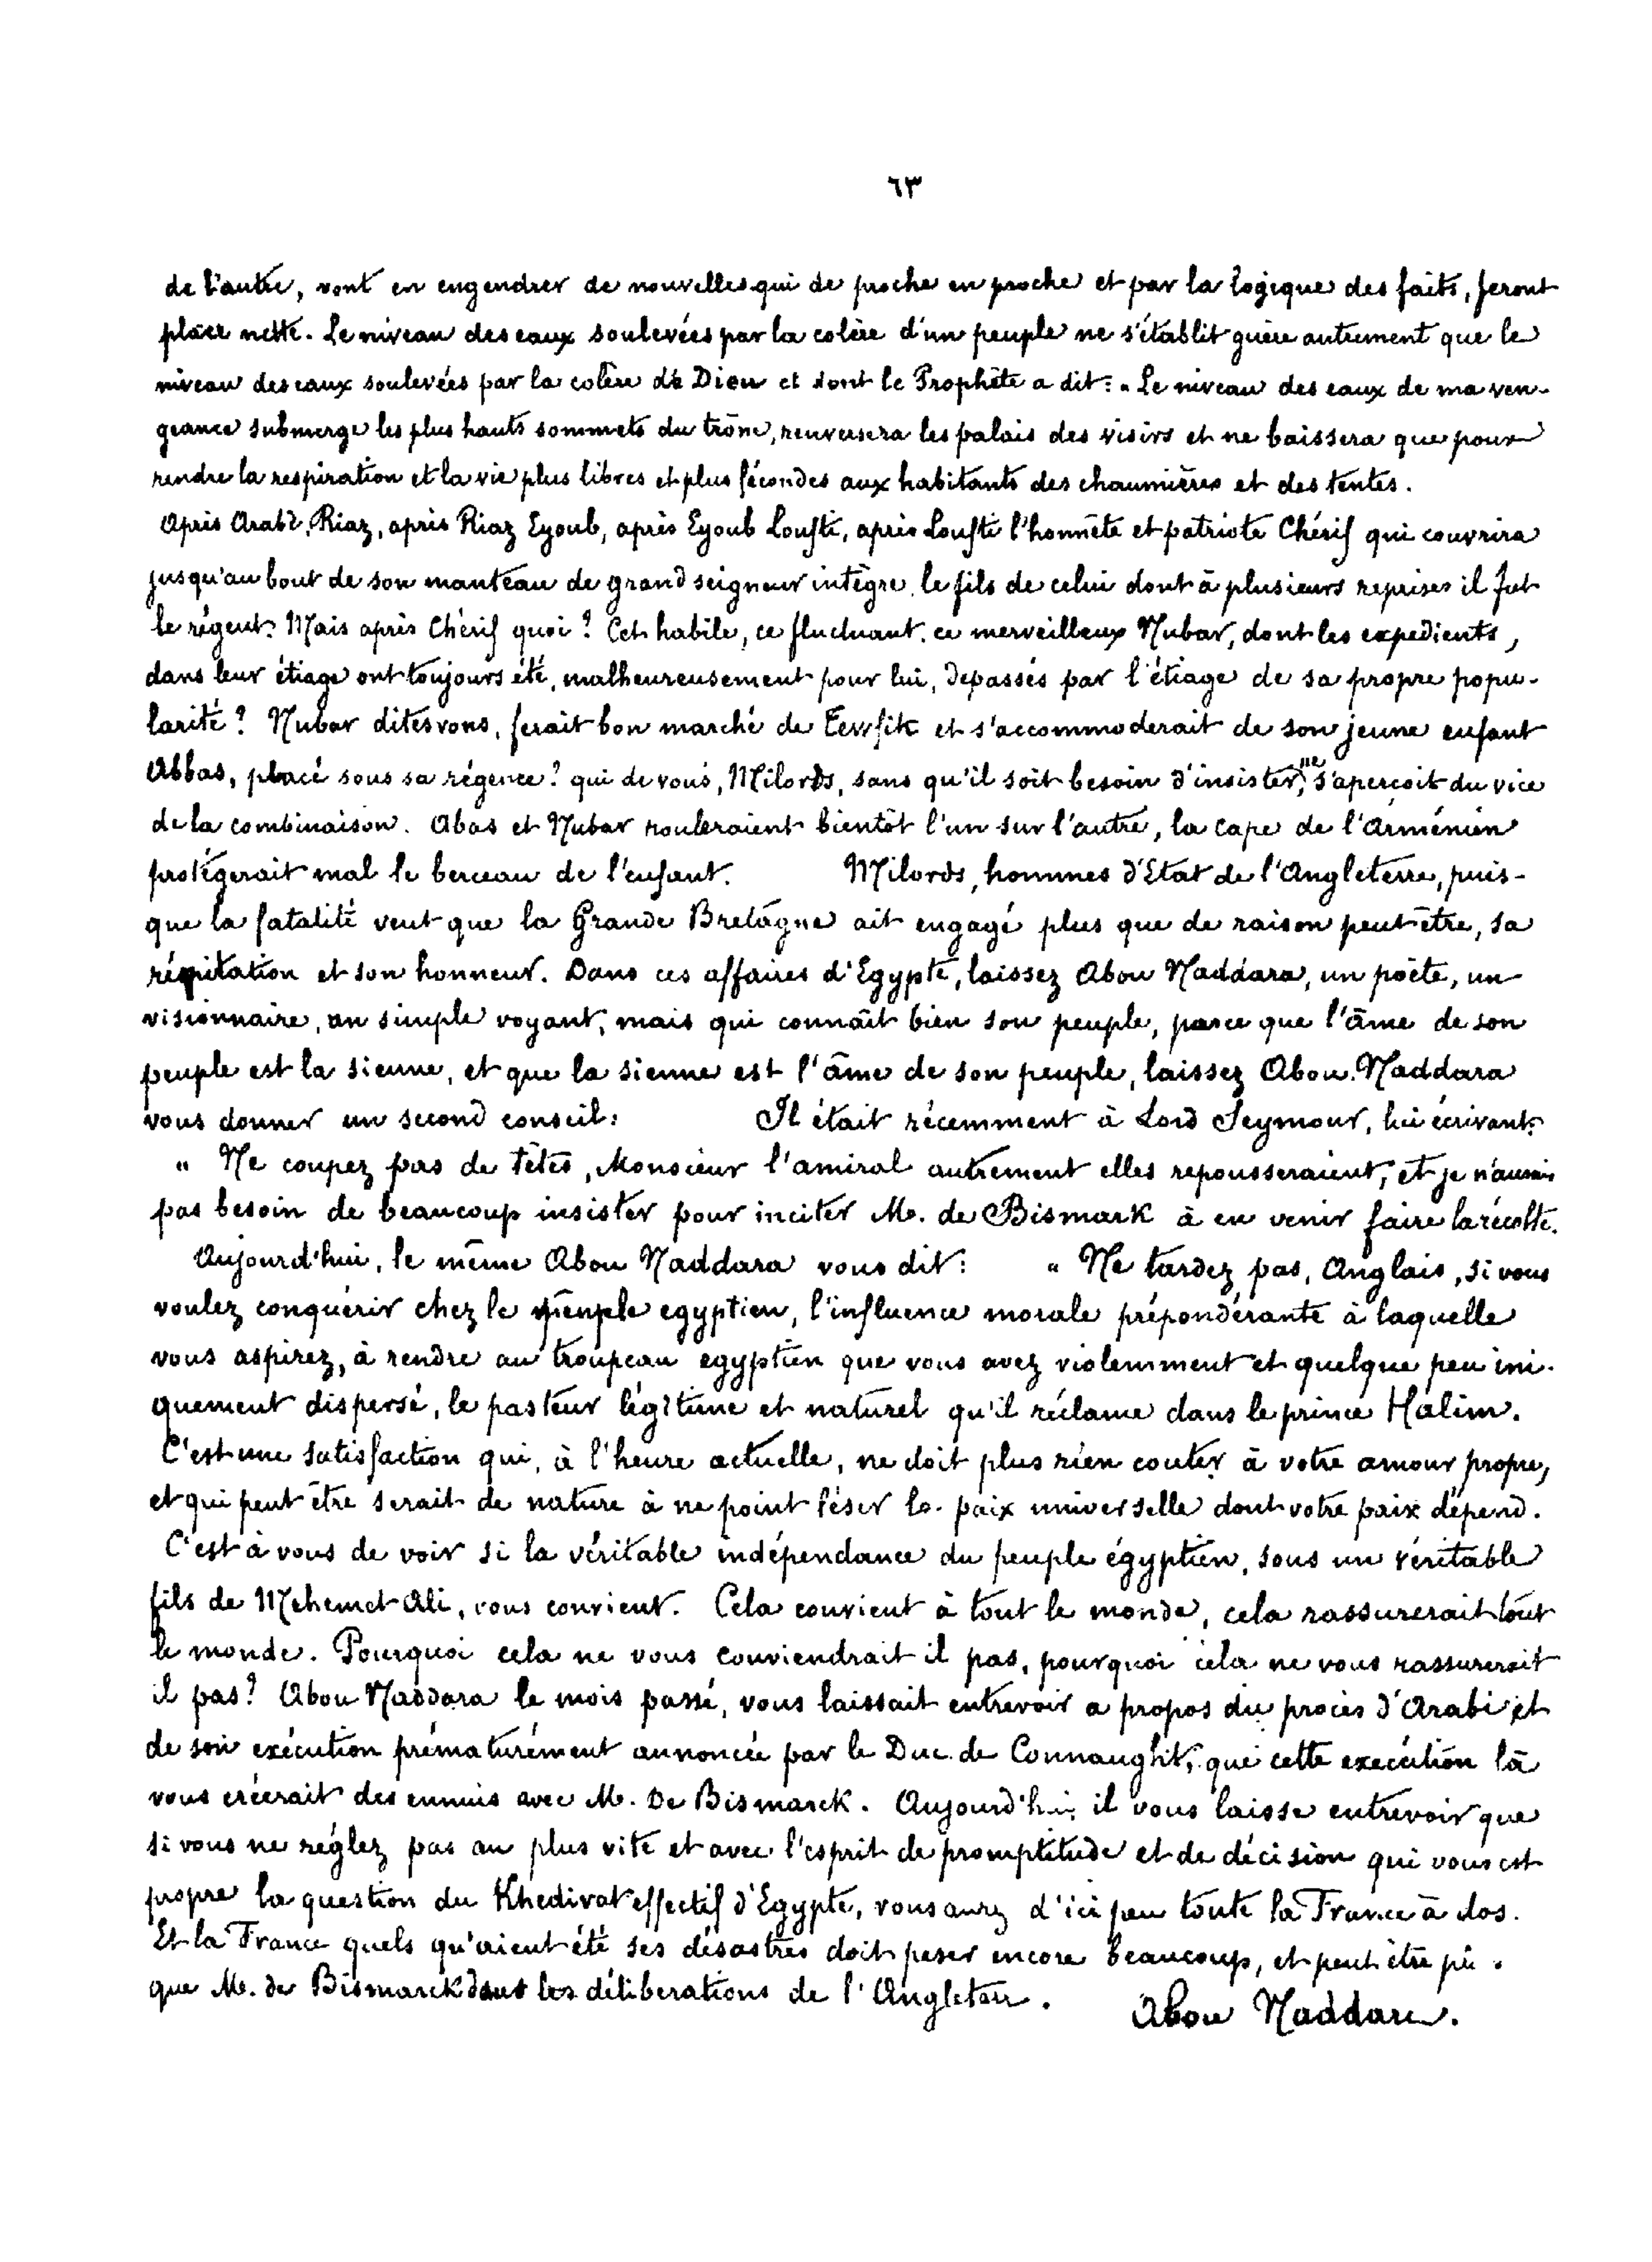 ٦٣
de l'autre, vont en engendrer de nouvelles qui de proche en proche et par la logique des faits, feront
place nette. Le niveau des eaux soulevées par la colère d'un peuple ne s'établit guère autrement que le
niveau des eaux soulevées par la colère de Dieu et dont le Prophète a dit: « Le niveau des eaux de ma ven-
geance submerge les plus hauts sommets du trône, renversera les palais des visirs et ne baissera que pour
rendre la respiration et la vie plus libres et plus fécondes aux habitants des chaumières et des tentes.
Après Arabi, Riaz, après Riaz Eyoub, après Eyoub Loufti, après Loufti l'honnête et patriote Chérif qui couvrira
jusqu'au bout de son manteau de grand seigneur intègre, le fils de celui dont à plusieurs reprises il fut
le régent. Mais après Chérif quoi? Cet habile, ce fluctuant, ce merveilleux Nubar, dont les expedients,
dans leur étiage ont toujours été, malheureusement pour lui, depassés par l'étiage de sa propre popu-
larité? Nubar dites vous, ferait bon marché de Tewfik et s'accommoderait de son jeune enfant
Abbas, placé sous sa régence? qui de vous, Milords, sans qu'il soit besoin d'insister, ne s'aperçoit du vice
de la combinaison. Abas et Nubar rouleraient bientôt l'un sur l'autre, la cape de l'Arménien
protégerait mal le berceau de l'enfant. Milords, hommes d'Etat de l'Angleterre, puis-
que la fatalité veut que la Grande Bretagne ait engagé plus que de raison peut être, sa
réputation et son honneur. Dans ces affaires d'Egypte, laissez Abou Naddara, un poète, un
visionnaire, un simple voyant, mais qui connaît bien son peuple, parce que l'âme de son
peuple est la sienne, et que la sienne est l'âme de son peuple, laissez Abou Naddara
vous donner un second conseil: Il était récemment à Lord Seymour, lui écrivant:
« Ne coupez pas de têtes, Monsieur l'amiral autrement elles repousseraient, et je n'aurais
pas besoin de beaucoup insister pour inciter M. de Bismark à en venir faire la récolte.
Aujourd'hui, le même Abou Naddara vous dit: « Ne tardez pas, Anglais, si vous
voulez conquérir chez le peuple egyptien, l'influence morale prépondérante à laquelle
vous aspirez, à rendre au troupeau egyptien que vous avez violemment et quelque peu ini-
quement dispersé, le pasteur légitime et naturel qu'il réclame dans le prince Halim.
C'est une satisfaction qui, à l'heure actuelle, ne doit plus rien couter à votre amour propre,
et qui peut être serait de nature à ne point léser la paix universelle dont votre paix dépend.
C'est à vous de voir si la véritable indépendance du peuple égyptien, sous un véritable
fils de Mehemet Ali, vous convient. Cela convient à tout le monde, cela rassurerait tout
le monde. Pourquoi cela ne vous conviendrait il pas, pourquoi cela ne vous rassurerait
il pas? Abou Naddara le mois passé, vous laissait entrevoir a propos du procès d'Arabi et
de son exécution prématurément annoncée par le Duc de Connaught, que cette execution là
vous créerait des ennuis avec M. De Bismarck. Aujourd'hui il vous laisse entrevoir que
si vous ne réglez pas au plus vite et avec l'esprit de promptitude et de décision qui vous est
propre la question du Khedivat effectif d'Egypte, vous aurez d'ici peu toute la France à dos.
Et la France quels qu'aient été ses désastres doit peser encore beaucoup, et peut être
que M. de Bismarck dans les déliberations de l'Angleterre.
Abou Naddara.